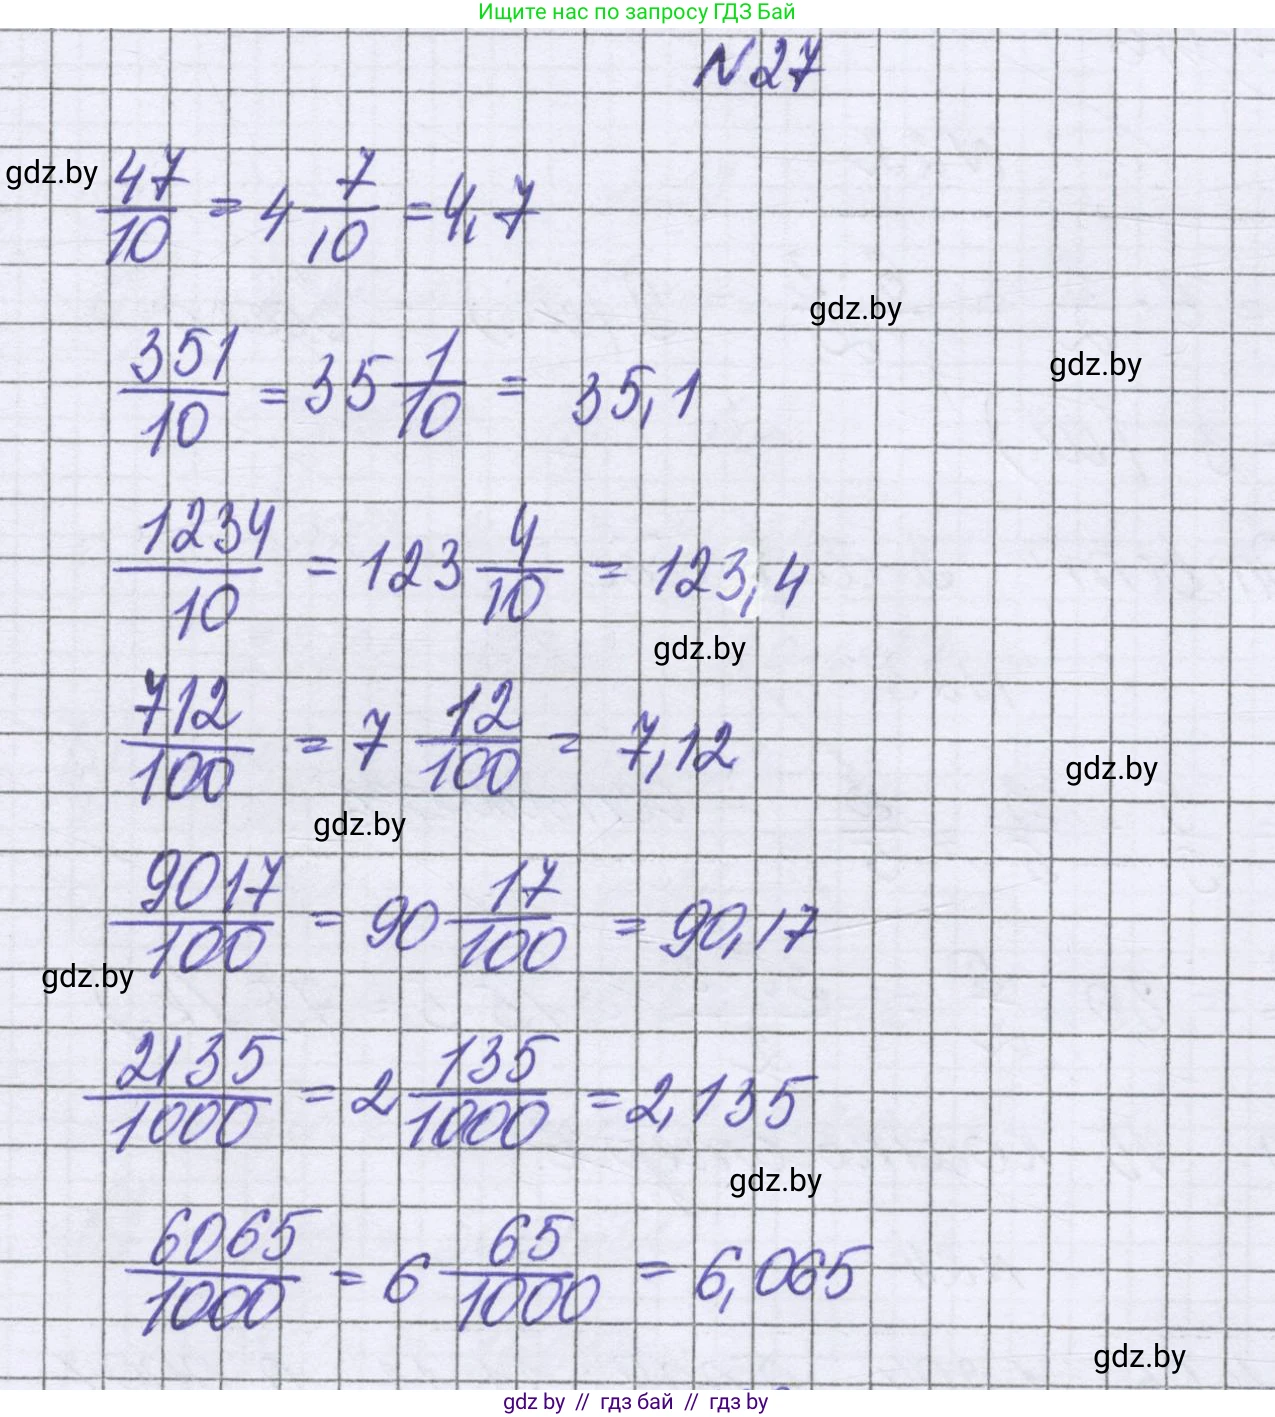 Ищите нас по запросу ГДЗ Бай
N 27
gdz.by
47/10 = 4 7/10 = 4,7
gdz.by
gdz.by
351/10 = 35 1/10 = 35,1
1234/10 = 123 4/10 = 123,4
gdz.by
712/100 = 7 12/100 = 7,12
gdz.by
gdz.by
9017/100 = 90 17/100 = 90,17
gdz.by
2135/1000 = 2 135/1000 = 2,135
gdz.by
6065/1000 = 6 65/1000 = 6,065
gdz.by
gdz by // гдз бай // гдз by